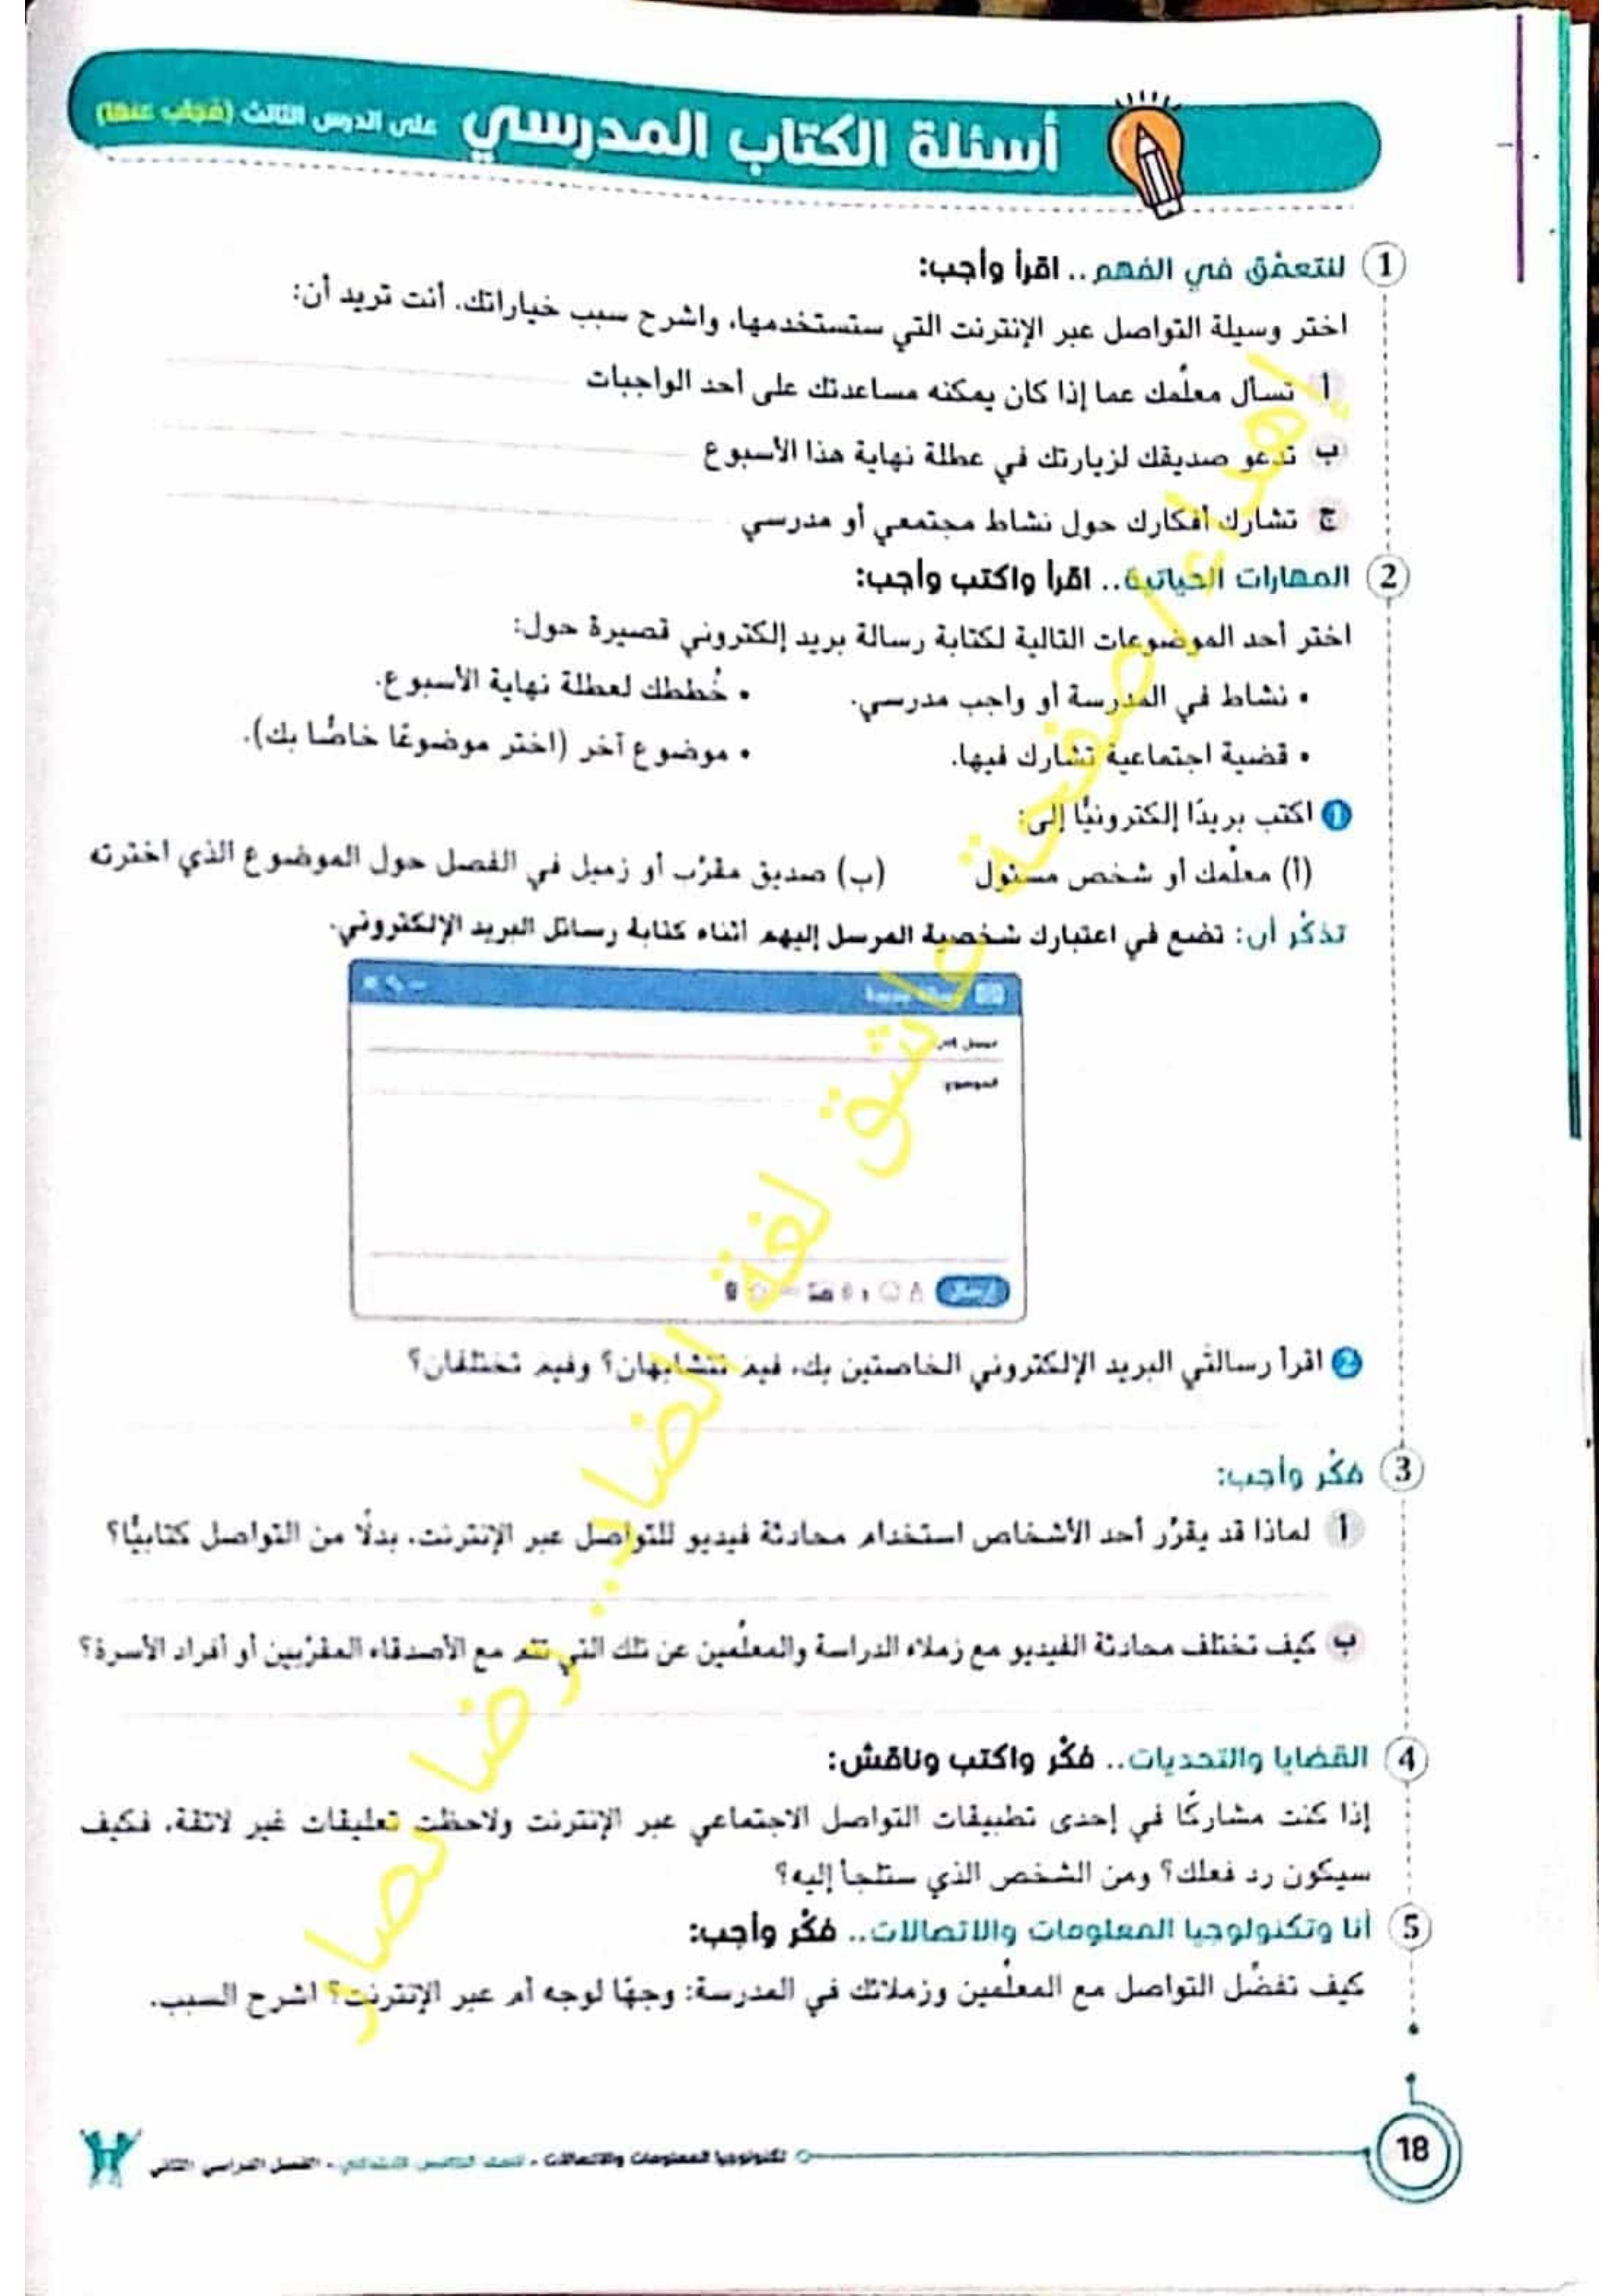 أسئلة الكتاب المدرسي على الدرس الثالث (مُجاب عنها)
1 لنتعمَّق في الفهم.. اقرأ وأجب:
اختر وسيلة التواصل عبر الإنترنت التي ستستخدمها، واشرح سبب خياراتك. أنت تريد أن:
أ تسأل معلِّمك عما إذا كان يمكنه مساعدتك على أحد الواجبات
ب تدعو صديقك لزيارتك في عطلة نهاية هذا الأسبوع
ج تشارك أفكارك حول نشاط مجتمعي أو مدرسي
2 المهارات الحياتية.. اقرأ واكتب وأجب:
اختر أحد الموضوعات التالية لكتابة رسالة بريد إلكتروني قصيرة حول:
• نشاط في المدرسة أو واجب مدرسي. • خُططك لعطلة نهاية الأسبوع.
• قضية اجتماعية تشارك فيها. • موضوع آخر (اختر موضوعًا خاصًّا بك).
1 اكتب بريدًا إلكترونيًّا إلى:
(أ) معلِّمك أو شخص مسئول (ب) صديق مقرَّب أو زميل في الفصل حول الموضوع الذي اخترته
تذكَّر أن: تضع في اعتبارك شخصية المرسل إليهم أثناء كتابة رسائل البريد الإلكتروني.
الموضوع
إرسال
2 اقرأ رسالتَي البريد الإلكتروني الخاصتين بك، فيمَ تتشابهان؟ وفيمَ تختلفان؟
3 فكِّر وأجب:
أ لماذا قد يقرِّر أحد الأشخاص استخدام محادثة فيديو للتواصل عبر الإنترنت، بدلًا من التواصل كتابيًّا؟
ب كيف تختلف محادثة الفيديو مع زملاء الدراسة والمعلِّمين عن تلك التي تتم مع الأصدقاء المقرَّبين أو أفراد الأسرة؟
4 القضايا والتحديات.. فكِّر واكتب وناقش:
إذا كنت مشاركًا في إحدى تطبيقات التواصل الاجتماعي عبر الإنترنت ولاحظت تعليقات غير لائقة، فكيف
سيكون رد فعلك؟ ومن الشخص الذي ستلجأ إليه؟
5 أنا وتكنولوجيا المعلومات والاتصالات.. فكِّر وأجب:
كيف تفضِّل التواصل مع المعلِّمين وزملائك في المدرسة: وجهًا لوجه أم عبر الإنترنت؟ اشرح السبب.
18 تكنولوجيا المعلومات والاتصالات - للصف الخامس الابتدائي - الفصل الدراسي الثاني
إهداء لصفحة عاشق لغة الضاد.. رضا نصار